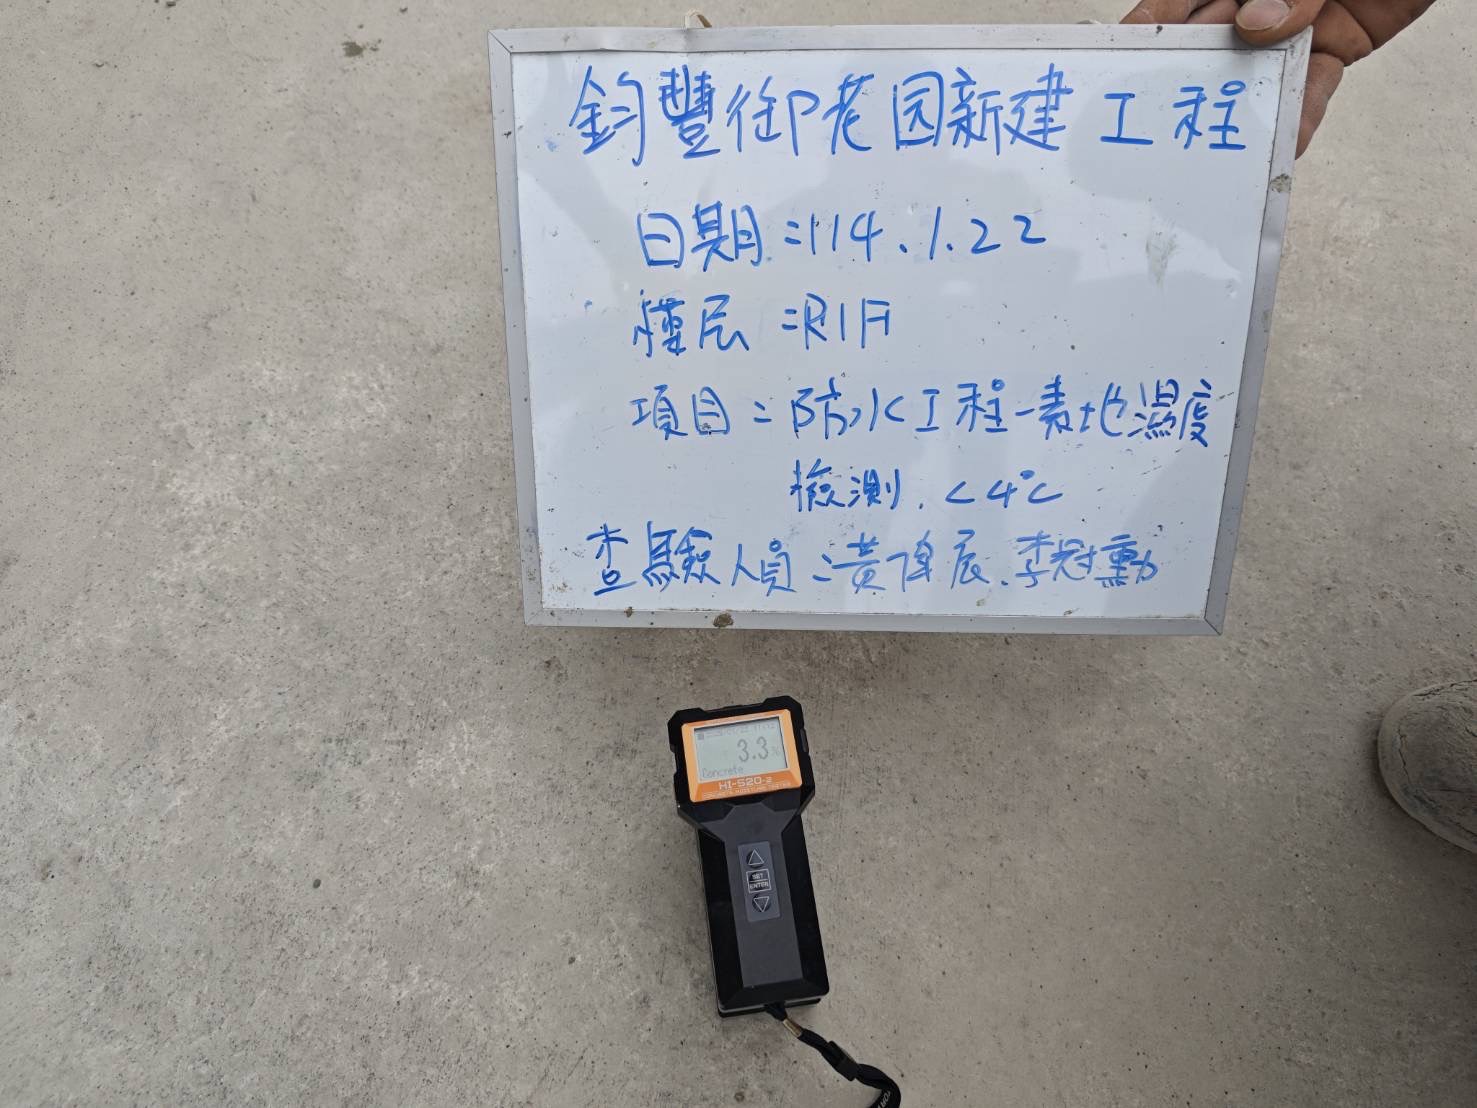 鈞豐御花园新建工程
日期:114.1.22
樓层:R1F
項目:防水工程-素地濕度
檢測.<4℃
查驗人員:黃偉辰.李冠勳
3.3%
Concrete
HI-520-2
CONCRETE MOISTURE TESTER
SET
ENTER